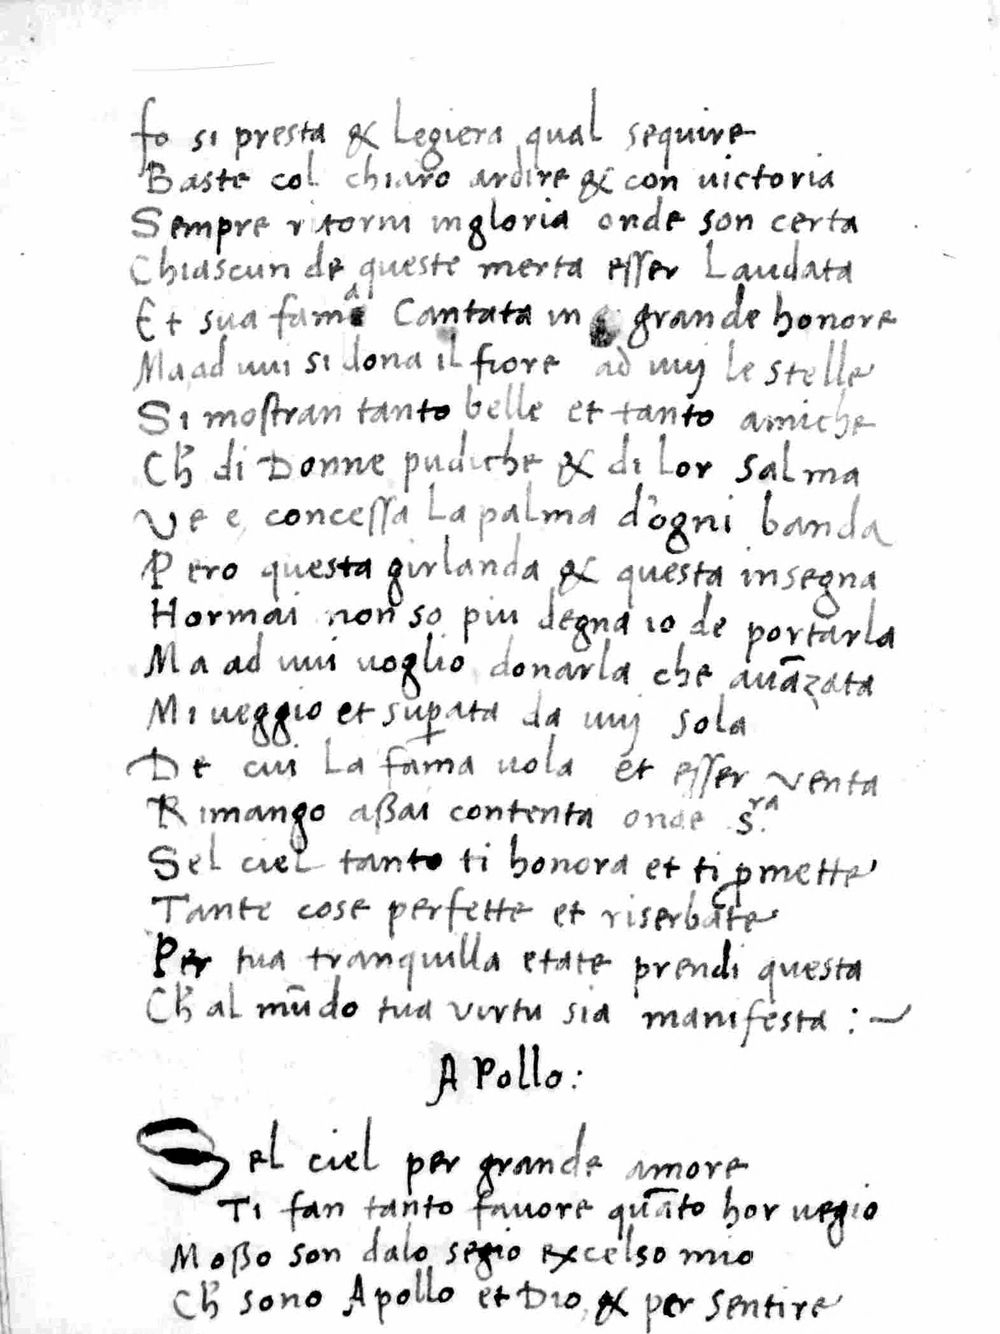 fo si presta & legiera qual sequire
Baste col chiaro ardire & con uictoria
Sempre ritorni ingloria onde son certa
Chiascun de queste merta esser Laudata
Et sua fama Cantata in grande honore
Ma ad uui si dona il fiore ad uuj le stelle
Si mostran tanto belle et tanto amiche
Ch̄ di Donne pudiche & di lor salma
Ve e concessa La palma d'ogni banda
Pero questa girlanda & questa insegna
Hormai non so piu degna io de portarla
Ma ad uui uoglio donarla che auāzata
Mi ueggio et suꝑata da uuj sola
De cui La fama uola et esser venta
Rimango aßai contenta onde S.ra
Sel ciel tanto ti honora et ti ꝓmette
Tante cose perfette et riserbate
Per tua tranquilla etate prendi questa
Ch̄ al mūdo tua virtu sia manifesta :~
Apollo:
Sel ciel per grande amore
Ti fan tanto fauore quāto hor uegio
Moßo son dalo segio excelso mio
Ch̄ sono Apollo et Dio, & per sentire